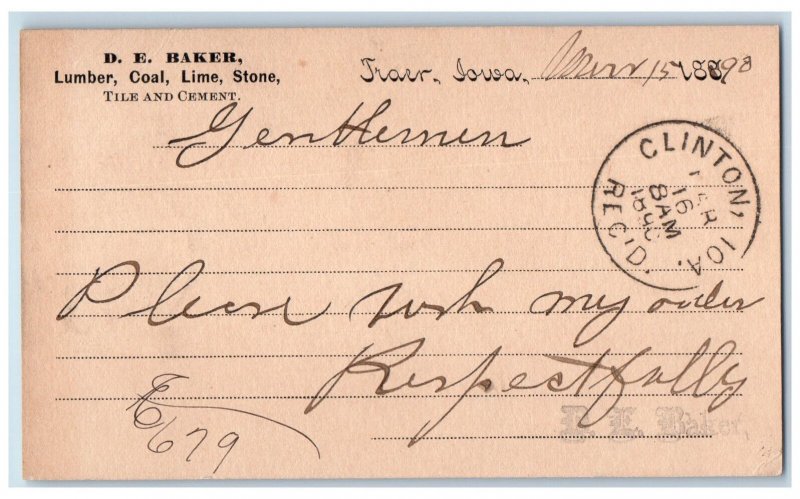 D. E. BAKER,
Lumber, Coal, Lime, Stone,
TILE AND CEMENT.
Traer, Iowa, Mar 15 1898
Gentlemen
CLINTON, IOA.
MAR
16
8AM
1898
REC'D.
Please rush my order
Respectfully
D. E. Baker,
679